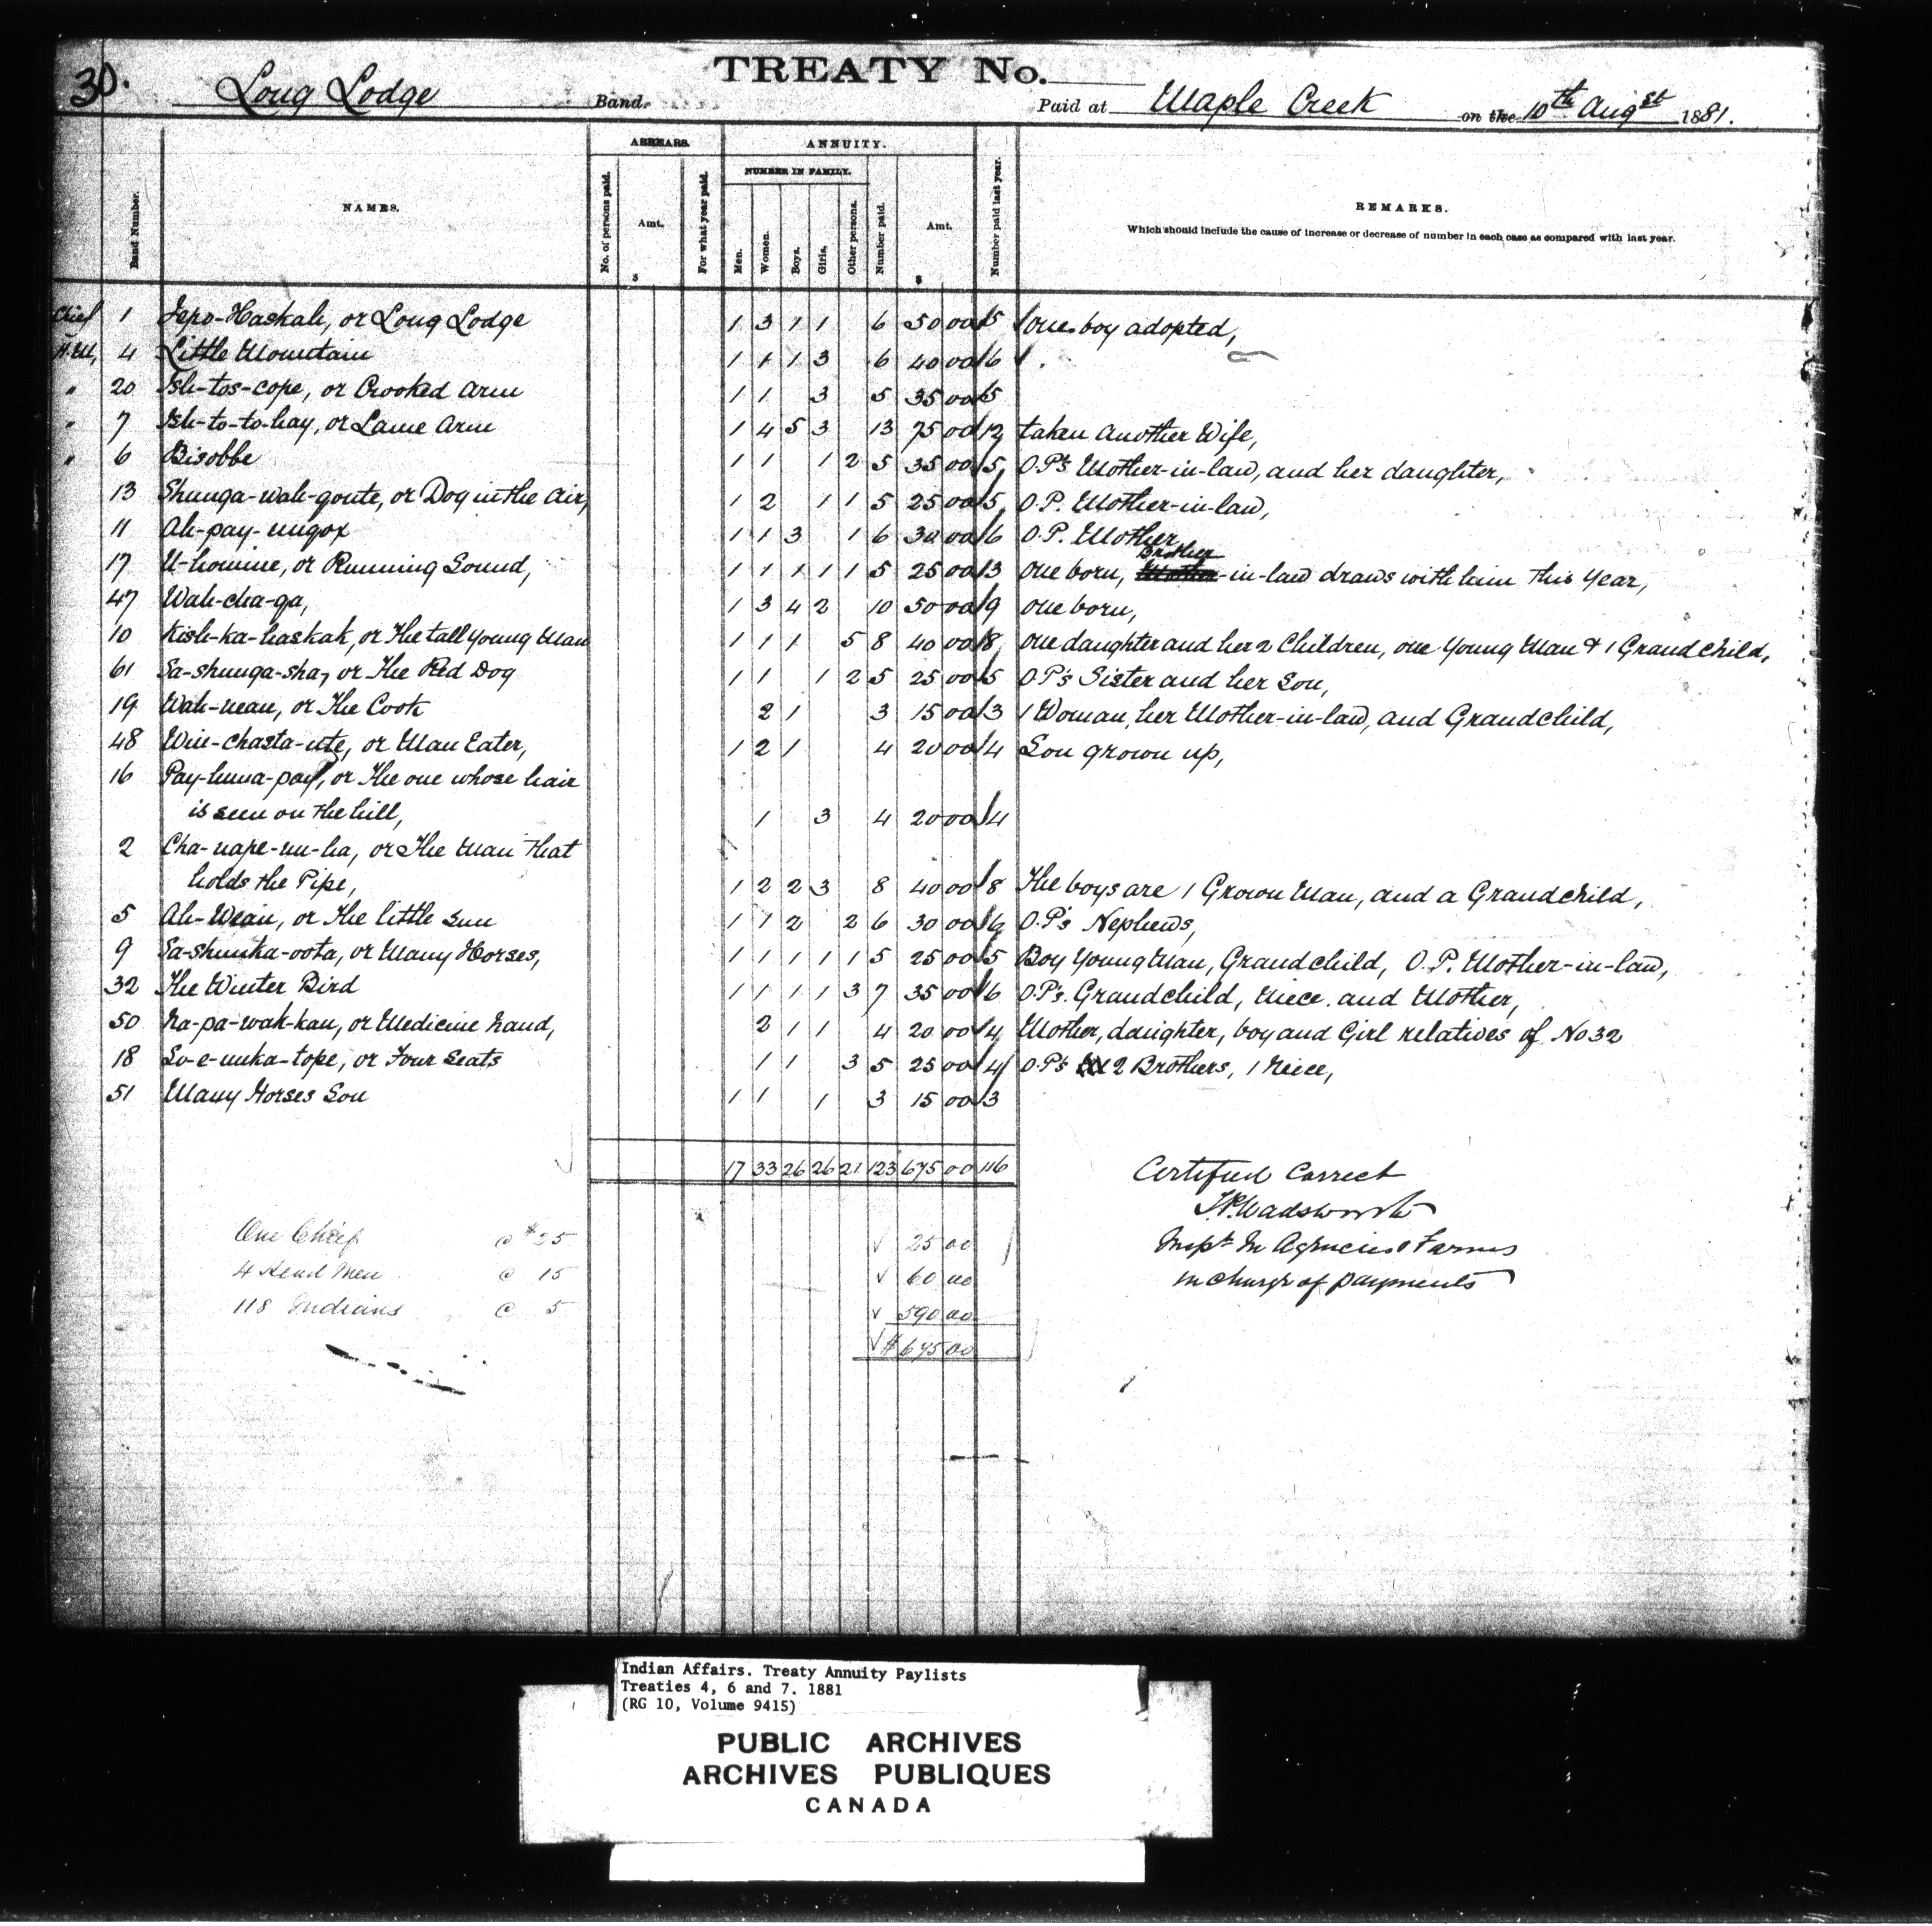 30.
TREATY No.
Long Lodge Band. Paid at Maple Creek on the 10th Augst 1881.
ARREARS. ANNUITY.
NUMBER IN FAMILY.
Band Number. NAMES. No. of persons paid. Amt. For what year paid. Men. Women. Boys. Girls. Other persons. Number paid. Amt. Number paid last year. REMARKS.
Which should include the cause of increase or decrease of number in each case as compared with last year.
$ $
Chief 1 Tepo-Haskah, or Long Lodge 1 3 1 1 6 50 00 5 one boy adopted,
H.M, 4 Little Mountain 1 1 1 3 6 40 00 6
" 20 Ish-tos-cope, or Crooked Arm 1 1 3 5 35 00 5
" 7 Ish-to-to-hay, or Lame Arm 1 4 5 3 13 75 00 12 taken another Wife,
" 6 Bisobbe 1 1 1 2 5 35 00 5 O.P's Mother-in-law, and her daughter,
13 Shunga-wah-goute, or Dog in the Air, 1 2 1 1 5 25 00 5 O.P. Mother-in-law,
11 Ah-pay-ungox 1 1 3 1 6 30 00 6 O.P. Mother
17 U-homine, or Running Sound, 1 1 1 1 1 5 25 00 3 one born, Mother Brother-in-law draws with him this Year,
47 Wah-cha-ga, 1 3 4 2 10 50 00 9 one born,
10 Kish-ka-haskak, or The tall young Man 1 1 1 5 8 40 00 8 one daughter and her 2 Children, one Young Man & 1 Grandchild,
61 Sa-shunga-sha, or The Red Dog 1 1 1 2 5 25 00 5 O.P's Sister and her Son,
19 Wah-nean, or The Cook 2 1 3 15 00 3 1 Woman, her Mother-in-law, and Grandchild,
48 Win-chasta-ute, or Man Eater, 1 2 1 4 20 00 4 Son grown up,
16 Pay-huna-pay, or The one whose hair
is seen on the hill, 1 3 4 20 00 4
2 Cha-nape-un-ha, or The Man that
holds the Pipe, 1 2 2 3 8 40 00 8 The boys are 1 Grown Man, and a Grandchild,
5 Ah-Wean, or The little Sun 1 1 2 2 6 30 00 6 O.P's Nephews,
9 Sa-shunka-oota, or Many Horses, 1 1 1 1 1 5 25 00 5 Boy Young Man, Grandchild, O.P. Mother-in-law,
32 The Winter Bird 1 1 1 1 3 7 35 00 6 O.P's. Grandchild, Niece. and Mother,
50 Na-pa-wak-kan, or Medicine hand, 2 1 1 4 20 00 4 Mother, daughter, boy and Girl relatives of No 32
18 So-e-unka-tope, or Four Seats 1 1 3 5 25 00 4 O.P's 2 Brothers, 1 neice,
51 Many Horses Son 1 1 1 3 15 00 3
17 33 26 26 21 123 675 00 116
Certified Correct
T.P. Wadsworth
Inspt In Agencies & Farms
in charge of payments
One Chief @ $25 25 00
4 Head Men @ 15 60 00
118 Indians @ 5 590 00
$ 675 00
Indian Affairs. Treaty Annuity Paylists
Treaties 4, 6 and 7. 1881
(RG 10, Volume 9415)
PUBLIC ARCHIVES
ARCHIVES PUBLIQUES
CANADA